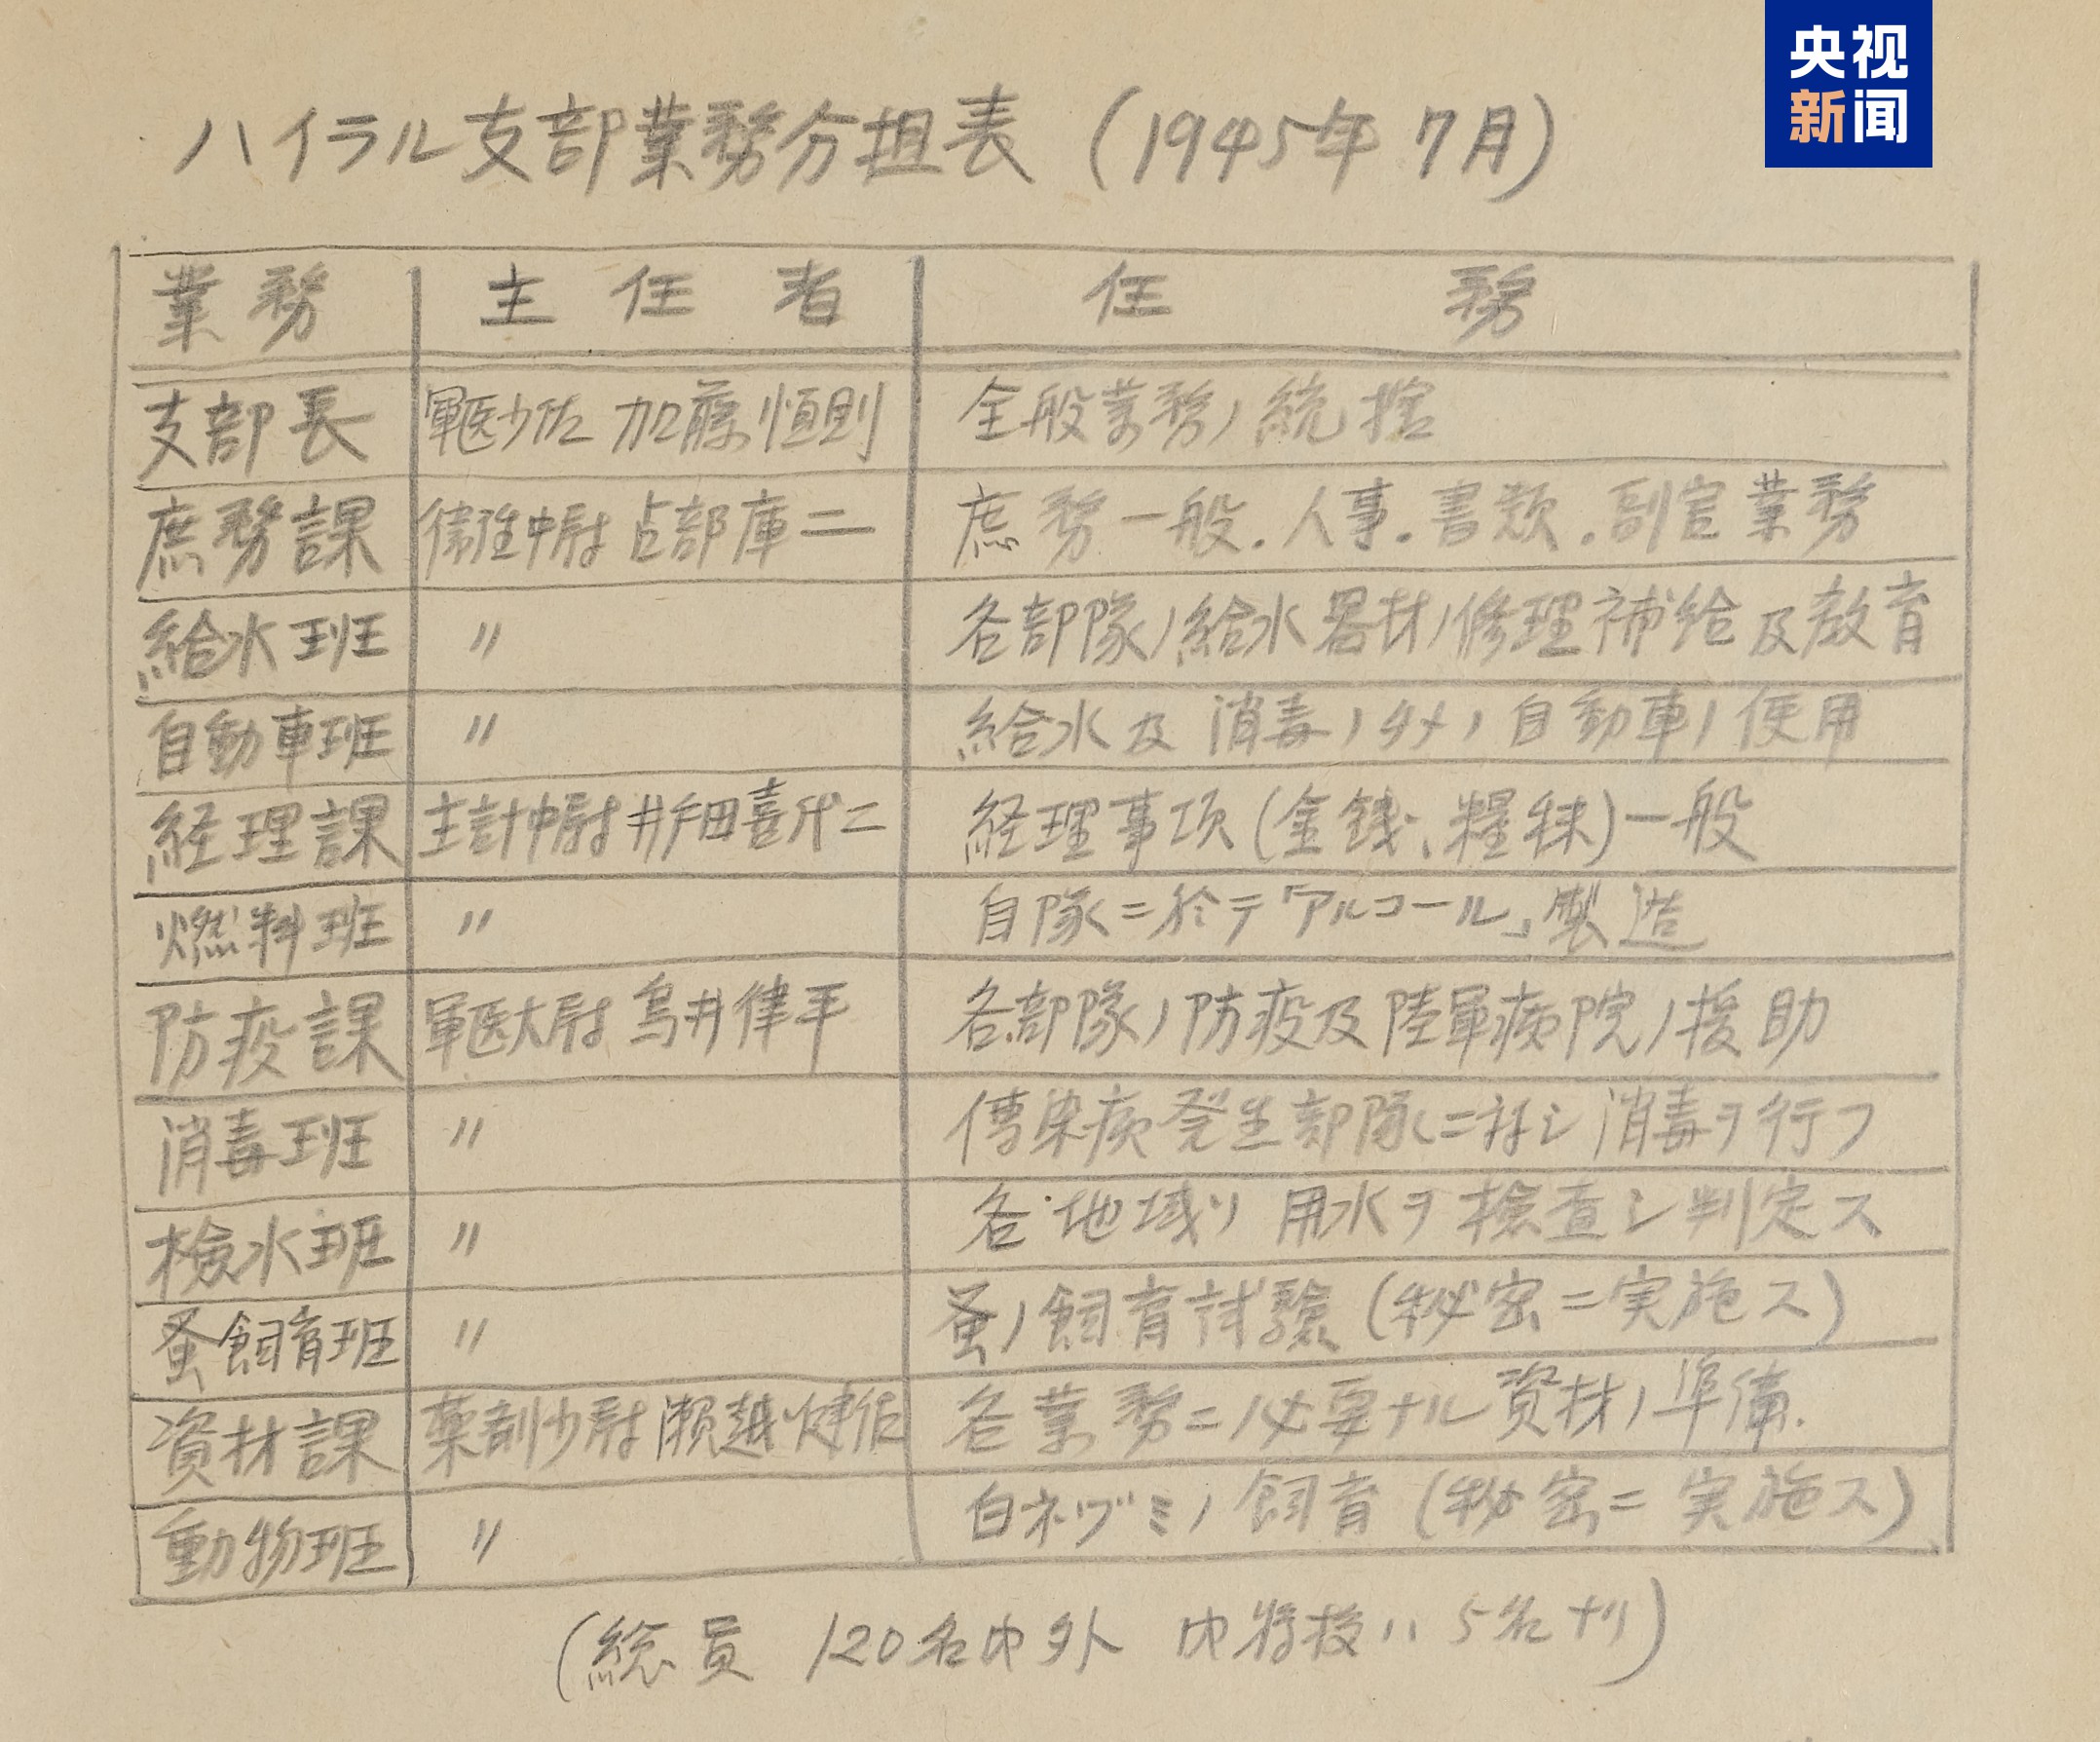 央视
新闻
ハイラル支部業務分担表 (1945年 7月)
業務 主任者 任務
支部長 軍医少佐 加藤恒則 全般業務ノ統括
庶務課 衛生中尉 占部庫二 庶務一般.人事.書類.副官業務
給水班 〃 各部隊ノ給水器材ノ修理補給及教育
自動車班 〃 給水及消毒ノタメノ自動車ノ使用
経理課 主計中尉 井戸田喜代二 経理事項(金銭、糧秣)一般
燃料班 〃 自隊ニ於テ「アルコール」製造
防疫課 軍医大尉 鳥井律平 各部隊ノ防疫及陸軍病院ノ援助
消毒班 〃 傳染病発生部隊ニ対シ消毒ヲ行フ
検水班 〃 各地域ノ用水ヲ検査シ判定ス
蚤飼育班 〃 蚤ノ飼育試験(秘密ニ実施ス)
資材課 薬剤少尉 瀬越健佐 各業務ニ必要ナル資材ノ準備.
動物班 〃 白ネヅミノ飼育(秘密ニ実施ス)
(総員 120名内外 内将校ハ 5名ナリ)